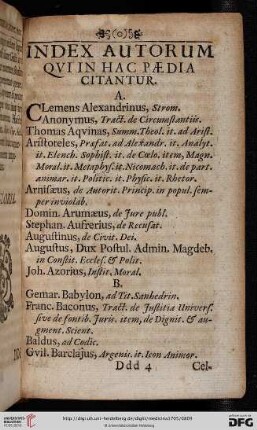 INDEX AUTORUM
QVI IN HAC PÆDIA
CITANTUR.
A.
CLemens Alexandrinus, Strom.
Anonymus, Tract. de Circumstantiis.
Thomas Aqvinas, Summ. Theol. it. ad Arist.
Aristoteles, Præfat. ad Alexandr. it. Analyt.
it. Elench. Sophist. it. de Cœlo, item, Magn.
Moral. it. Metaphys. it. Nicomach. it. de part.
animar. it. Politic. it. Physic. it. Rhetor.
Arnisæus, de Autorit. Princip. in popul. sem-
per inviolab.
Domin. Arumæus, de Jure publ.
Stephan. Aufrerius, de Recusat.
Augustinus, de Civit. Dei.
Augustus, Dux Postul. Admin. Magdeb.
in Constit. Eccles. & Polit.
Joh. Azorius, Instit. Moral.
B.
Gemar. Babylon, ad Tit. Sanhedrin.
Franc. Baconus, Tract. de Justitia Univers.
sive de fontib. Juris. item, de Dignit. & au-
gment. Scient.
Baldus, ad Codic.
Gvil. Barclajus, Argenis. it. Icon Animor.
Ddd 4
Cel-
DFG